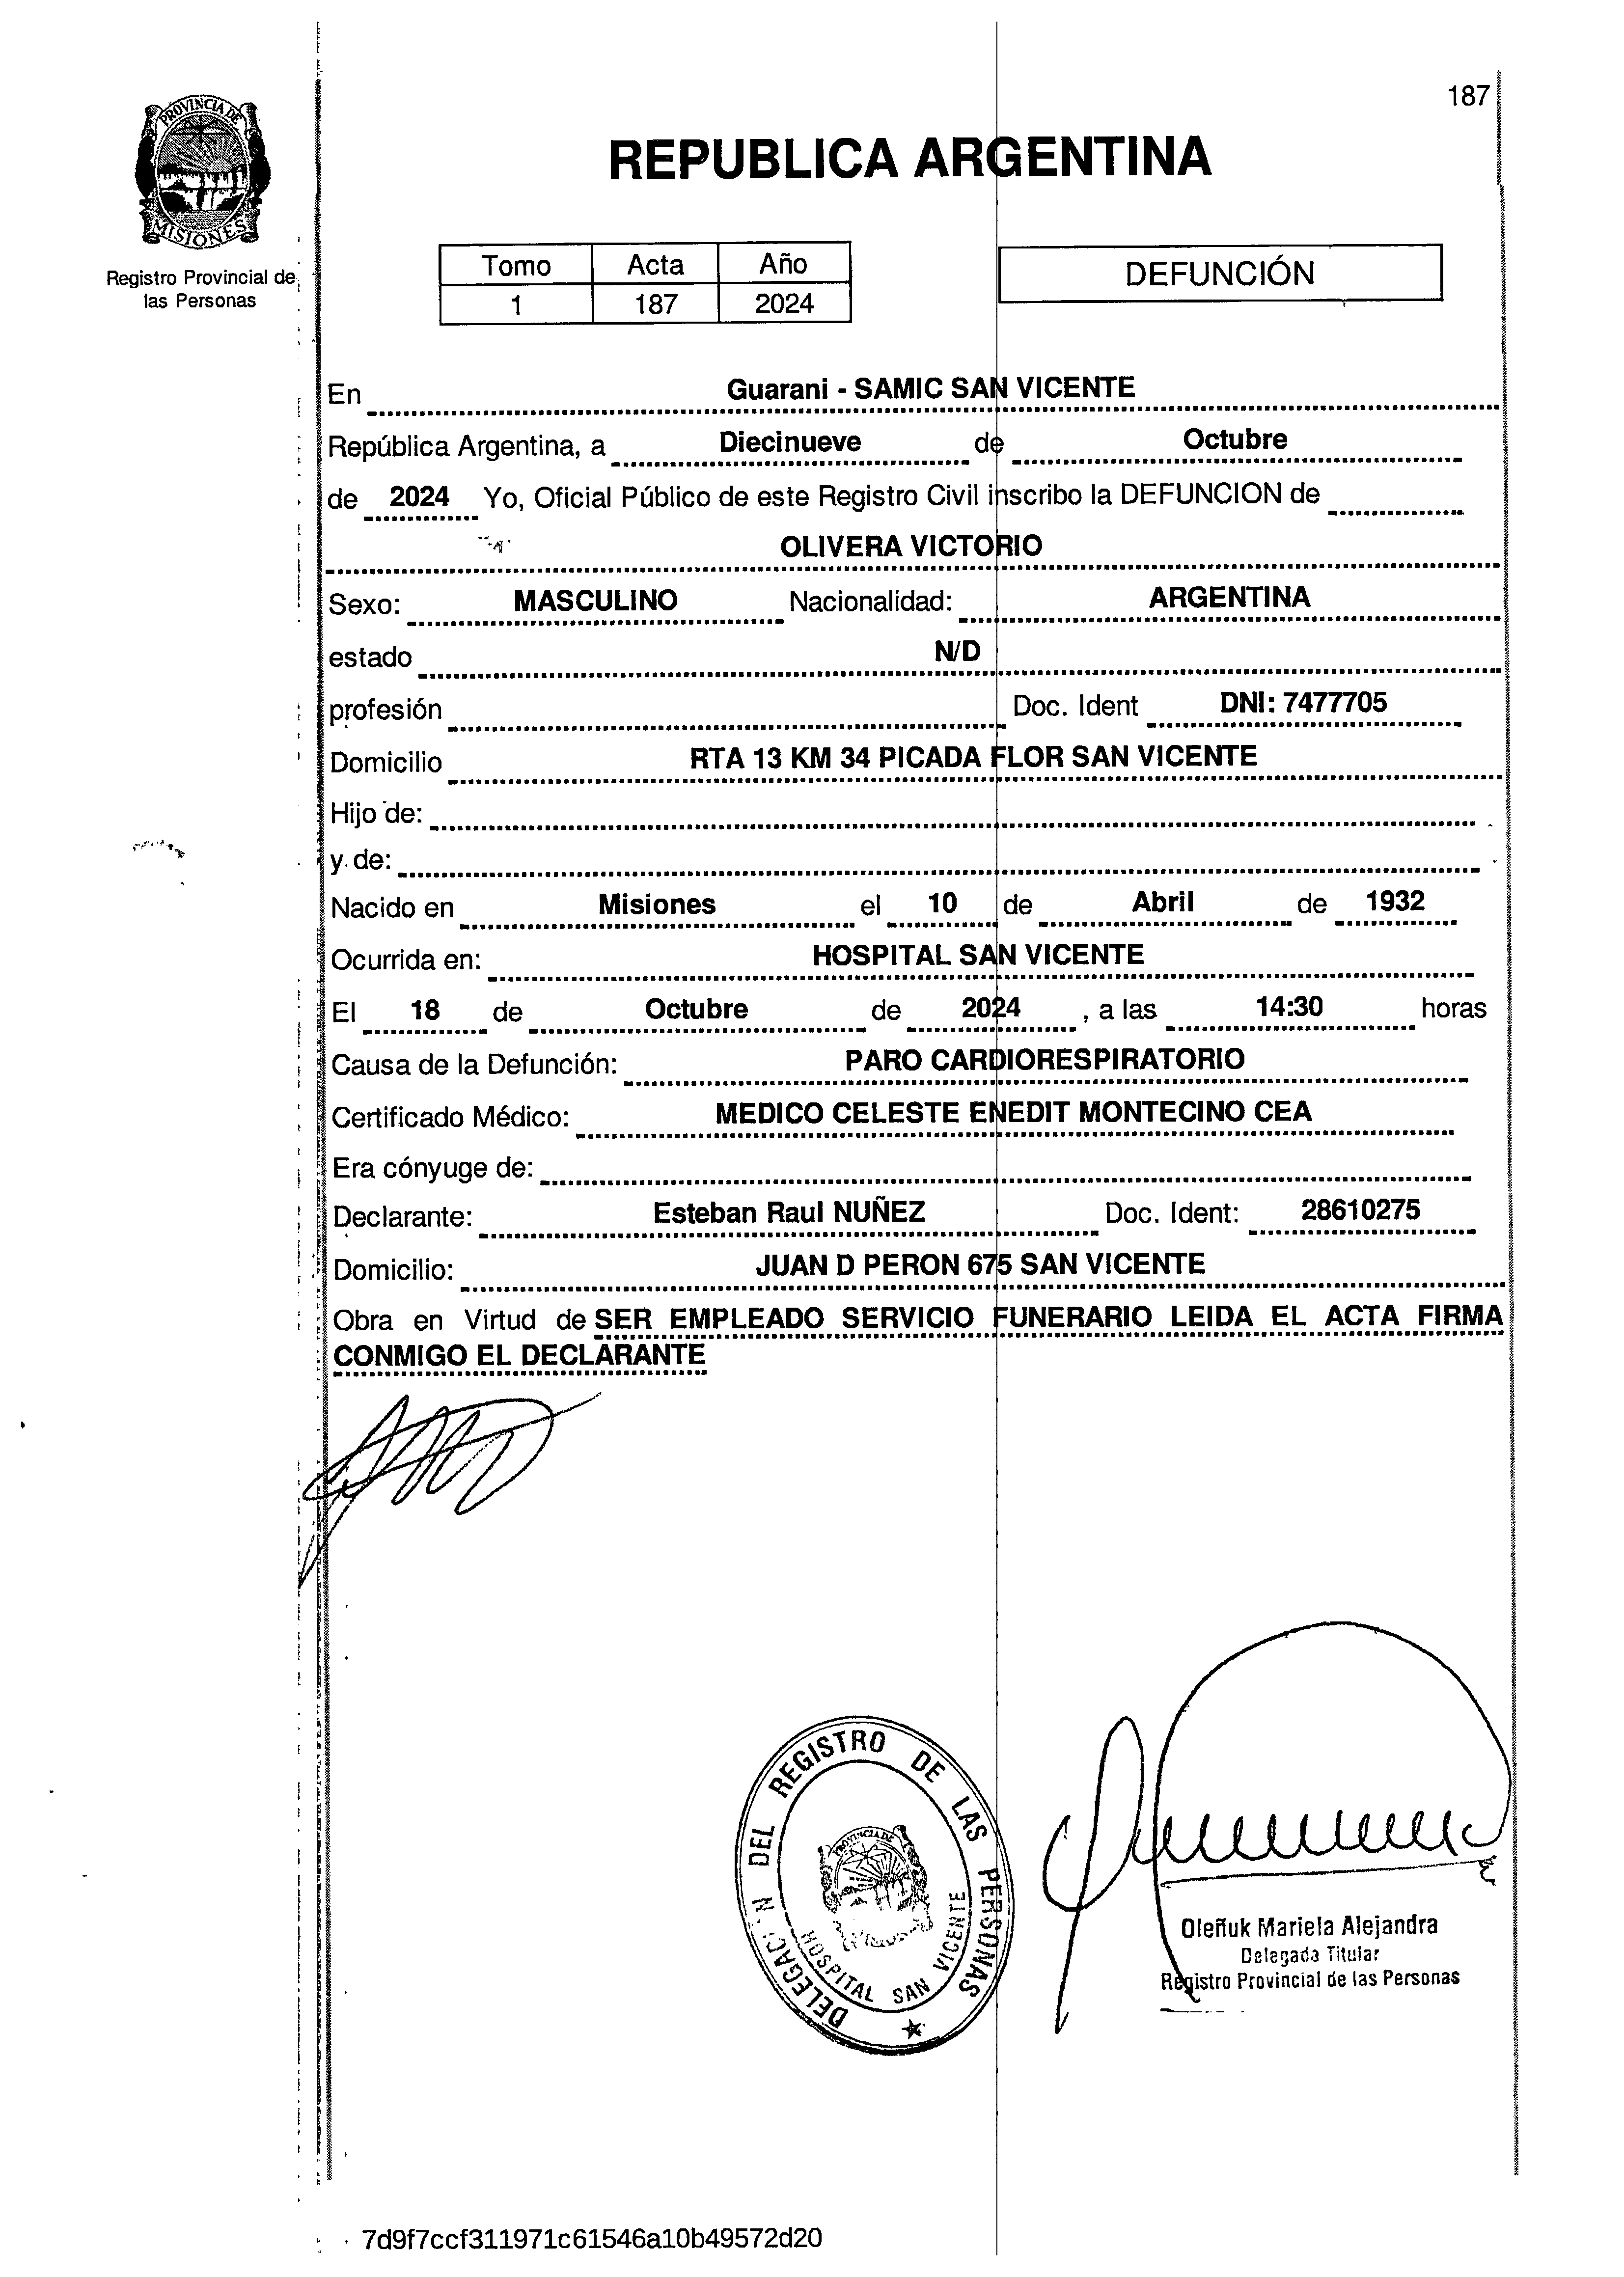 187
PROVINCIA DE
MISIONES
Registro Provincial de
las Personas
REPUBLICA ARGENTINA
Tomo Acta Año
1 187 2024
DEFUNCIÓN
En Guarani - SAMIC SAN VICENTE
República Argentina, a Diecinueve de Octubre
de 2024 Yo, Oficial Público de este Registro Civil inscribo la DEFUNCION de
OLIVERA VICTORIO
Sexo: MASCULINO Nacionalidad: ARGENTINA
estado N/D
profesión Doc. Ident DNI: 7477705
Domicilio RTA 13 KM 34 PICADA FLOR SAN VICENTE
Hijo de:
y de:
Nacido en Misiones el 10 de Abril de 1932
Ocurrida en: HOSPITAL SAN VICENTE
El 18 de Octubre de 2024 , a las 14:30 horas
Causa de la Defunción: PARO CARDIORESPIRATORIO
Certificado Médico: MEDICO CELESTE ENEDIT MONTECINO CEA
Era cónyuge de:
Declarante: Esteban Raul NUÑEZ Doc. Ident: 28610275
Domicilio: JUAN D PERON 675 SAN VICENTE
Obra en Virtud de SER EMPLEADO SERVICIO FUNERARIO LEIDA EL ACTA FIRMA
CONMIGO EL DECLARANTE
DELEGACION DEL REGISTRO DE LAS PERSONAS
PROVINCIA DE
HOSPITAL SAN VICENTE
Oleñuk Mariela Alejandra
Delegada Titular
Registro Provincial de las Personas
7d9f7ccf311971c61546a10b49572d20